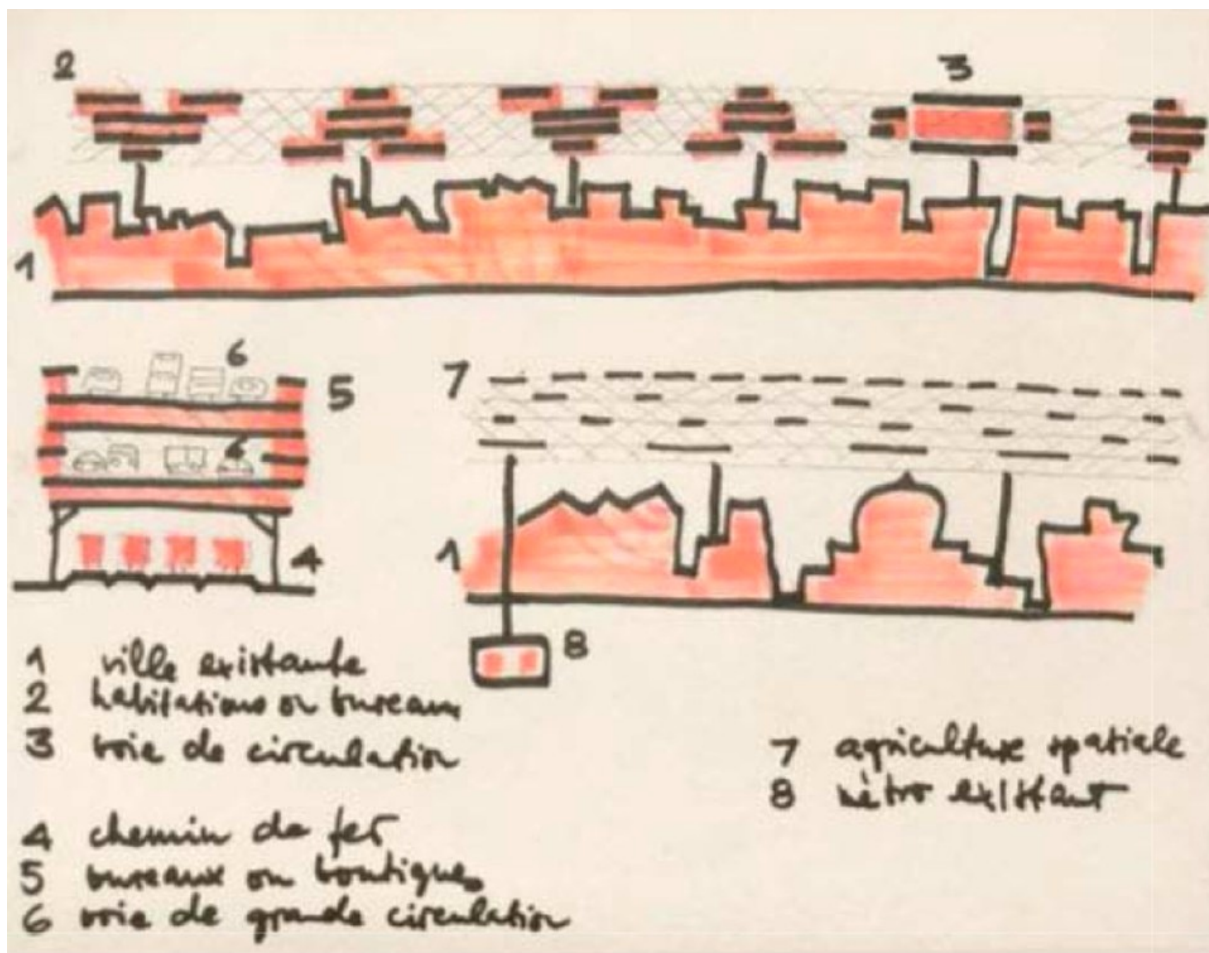 2
3
1
6
5
6
4
7
1
8
1 ville existante
2 habitations ou bureaux
3 voie de circulation
4 chemin de fer
5 bureaux ou boutiques
6 voie de grande circulation
7 agriculture spatiale
8 métro existant